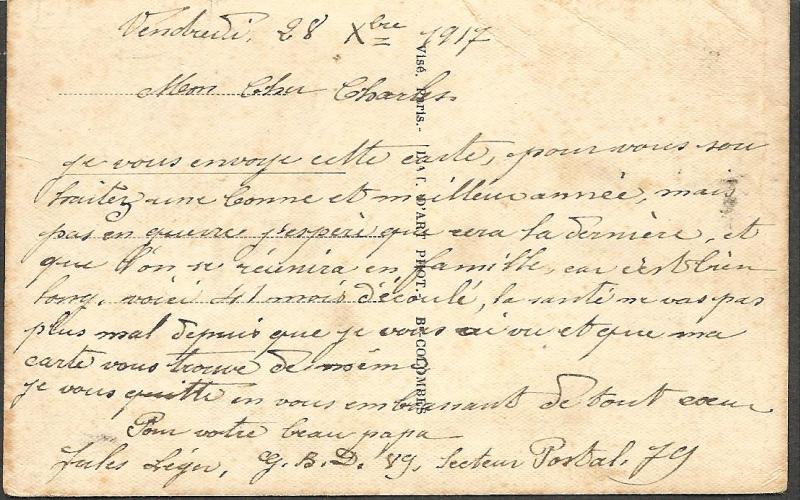 Vendredi. 28 Xbre 1917
Mon Cher Charles.
je vous envoye cette carte, pour vous sou
haiter une bonne et meilleur année, mais
pas en guerre j'espère que sera la dernière, et
que l'on se réunira en famille, car c'est bien
long, voici 41 mois d'écoulé, la santé ne vas pas
plus mal depuis que je vous ai vu et que ma
carte vous trouve de même
je vous quitte en vous embrassant de tout coeur
Pour votre beau papa
Jules Léger, G. B. D. 89, Secteur Postal. 79
Visé. Paris. - D'ART PHOT. Bs-COLOMBES